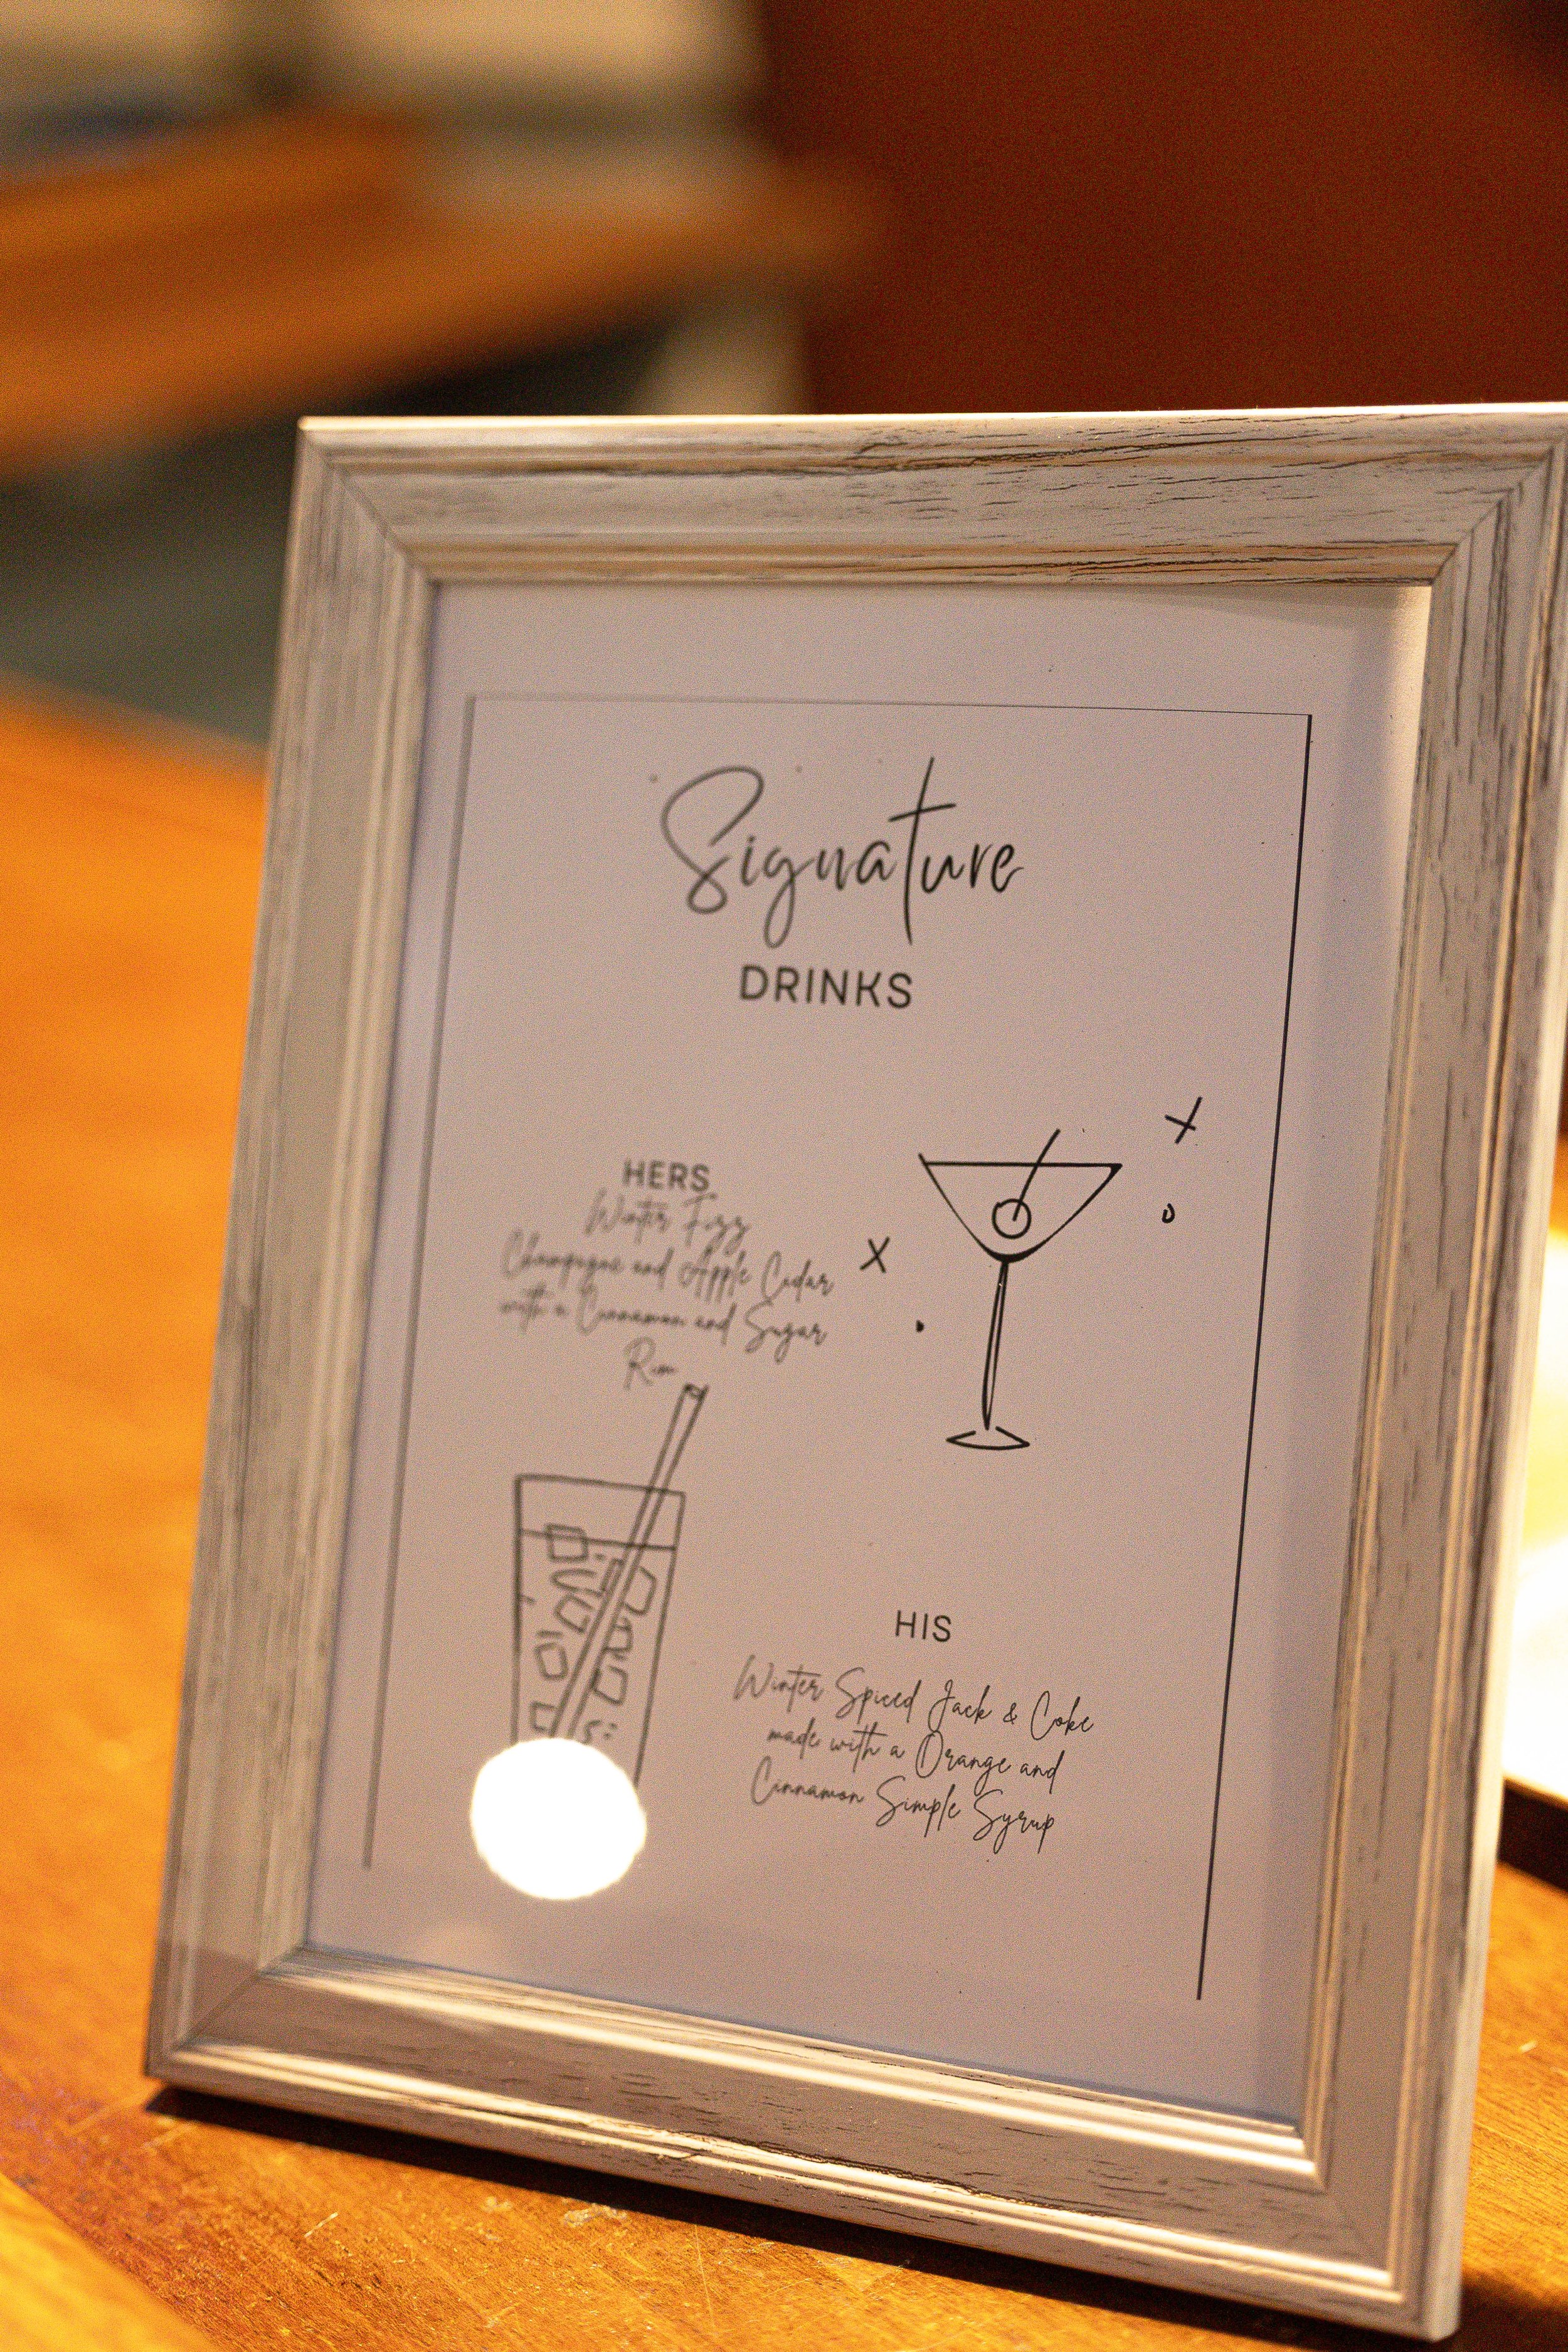 Signature
DRINKS
HERS
Winter Fizz
Champagne and Apple Cidar
with a Cinnamon and Sugar
Rim
HIS
Winter Spiced Jack & Coke
made with a Orange and
Cinnamon Simple Syrup